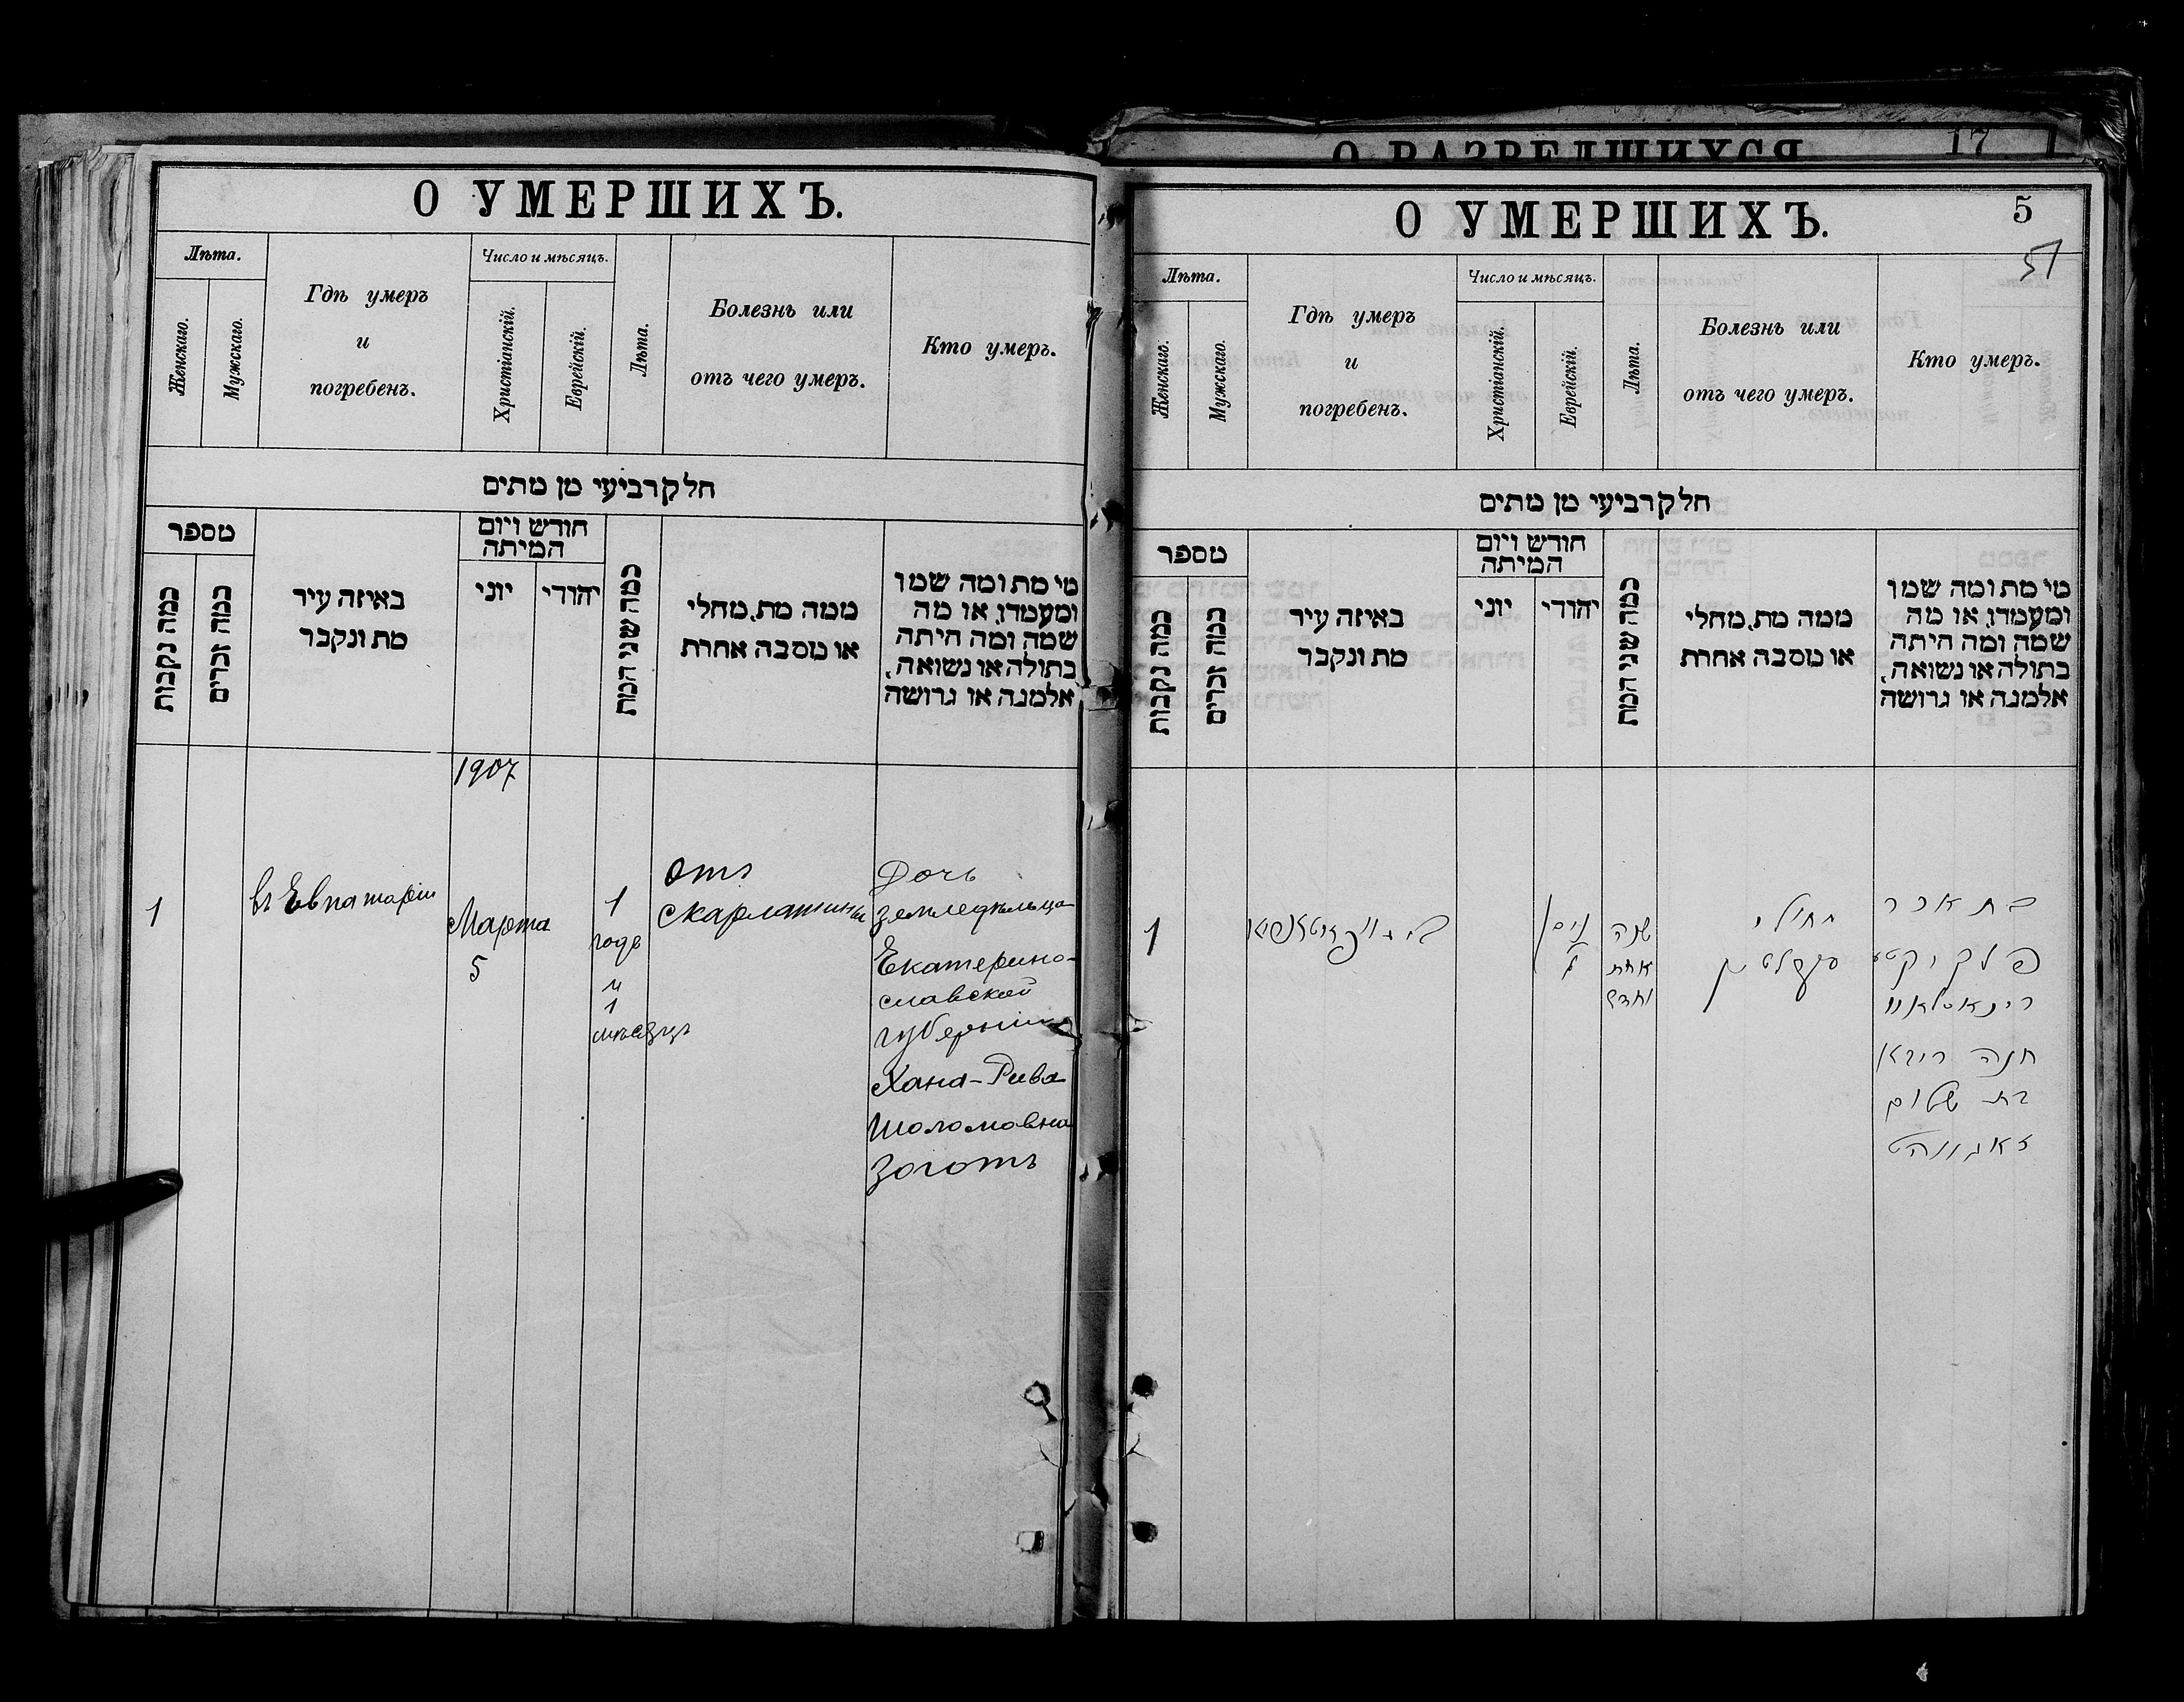 О РАЗВЕДШИХСЯ
17
О УМЕРШИХЪ.
Лѣта.
Женскаго.
Мужскаго.
Гдѣ умеръ
и
погребенъ.
Число и мѣсяцъ.
Христіанскій.
Еврейскій.
Лѣта.
Болезнь или
отъ чего умеръ.
Кто умеръ.
חלק רביעי מן מתים
מספר
כמה נקבות
כמה זכרים
באיזה עיר
מת ונקבר
חודש ויום
המיתה
יוני
יהודי
כמה שני המת
ממה מת, מחלי
או מסבה אחרת
מי מת ומה שמו
ומעמדו, או מה
שמה ומה היתה
בתולה או נשואה,
אלמנה או גרושה
1907
1
въ Евпаторіи
Марта
5
1
годъ
и
1
мѣсяцъ
Отъ
скарлатины
Дочь
земледѣльца
Екатерино-
славской
губерніи
Хана-Рива
Шоломовна
Зоготъ
О УМЕРШИХЪ.
5
51
Лѣта.
Женскаго.
Мужскаго.
Гдѣ умеръ
и
погребенъ.
Число и мѣсяцъ.
Христіанскій.
Еврейскій.
Лѣта.
Болезнь или
отъ чего умеръ.
Кто умеръ.
חלק רביעי מן מתים
מספר
כמה נקבות
כמה זכרים
באיזה עיר
מת ונקבר
חודש ויום
המיתה
יוני
יהודי
כמה שני המת
ממה מת, מחלי
או מסבה אחרת
מי מת ומה שמו
ומעמדו, או מה
שמה ומה היתה
בתולה או נשואה,
אלמנה או גרושה
1
ניסן
שנה
אחת
וחדש
מחולי
בת אכר
חנה ריווא
בת שלום